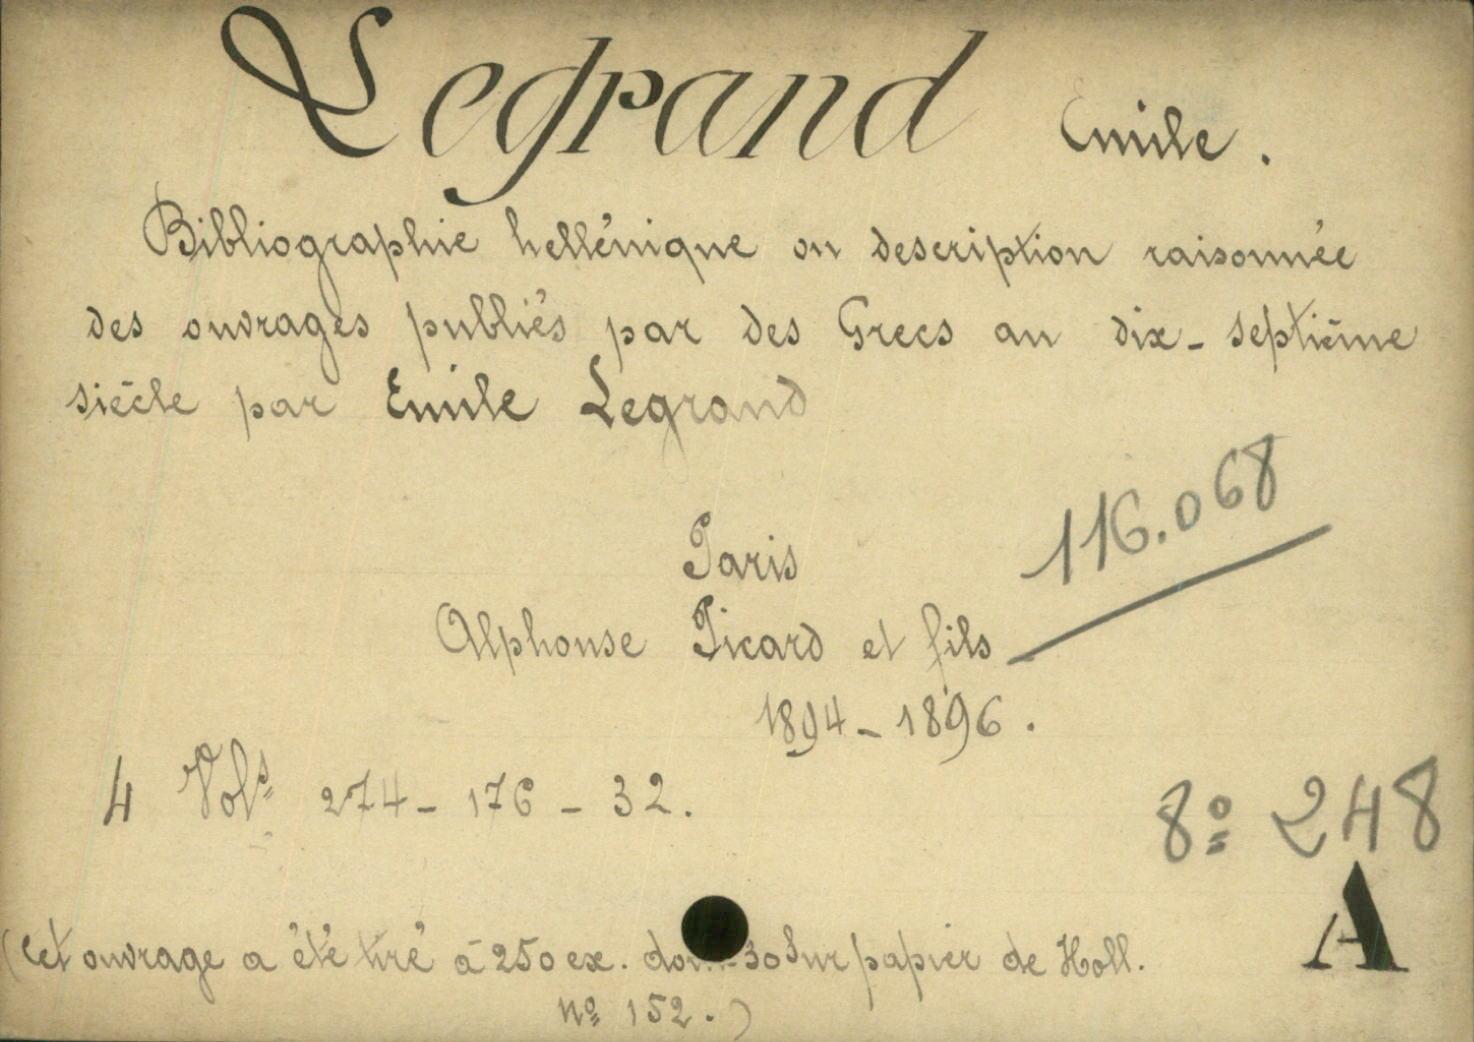 Legrand Emile.
Bibliographie hellénique ou description raisonnée
des ouvrages publiés par des Grecs au dix-septième
siècle par Emile Legrand
116.068
Paris
Alphonse Picard et fils
1894-1896.
4 Vols 274-176-32.
8º 248
A
(Cet ouvrage a été tiré à 250 ex. dont 30 sur papier de Holl.
nº 152.)